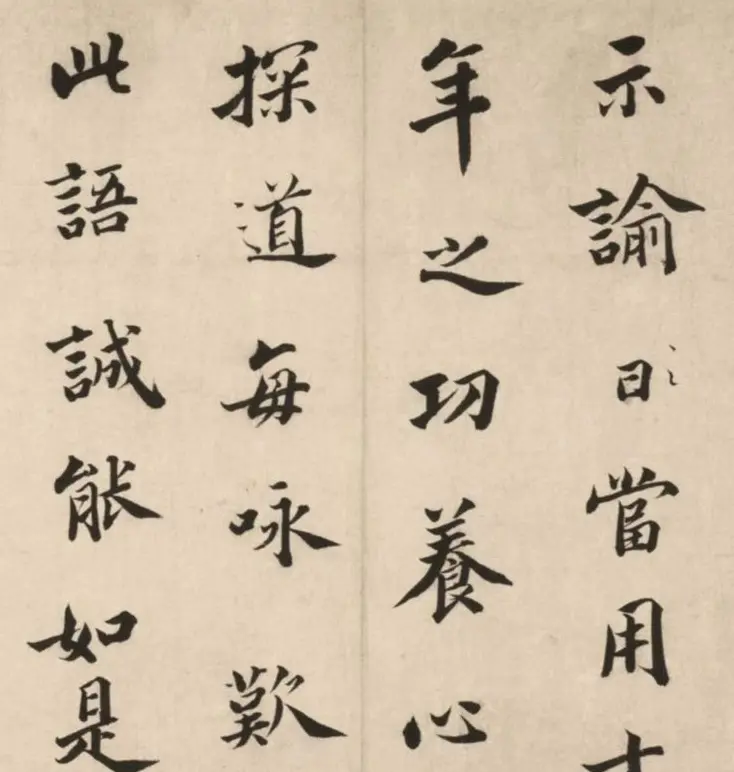 示諭日〻當用十
年之功養心
探道每咏歎
此語誠能如是